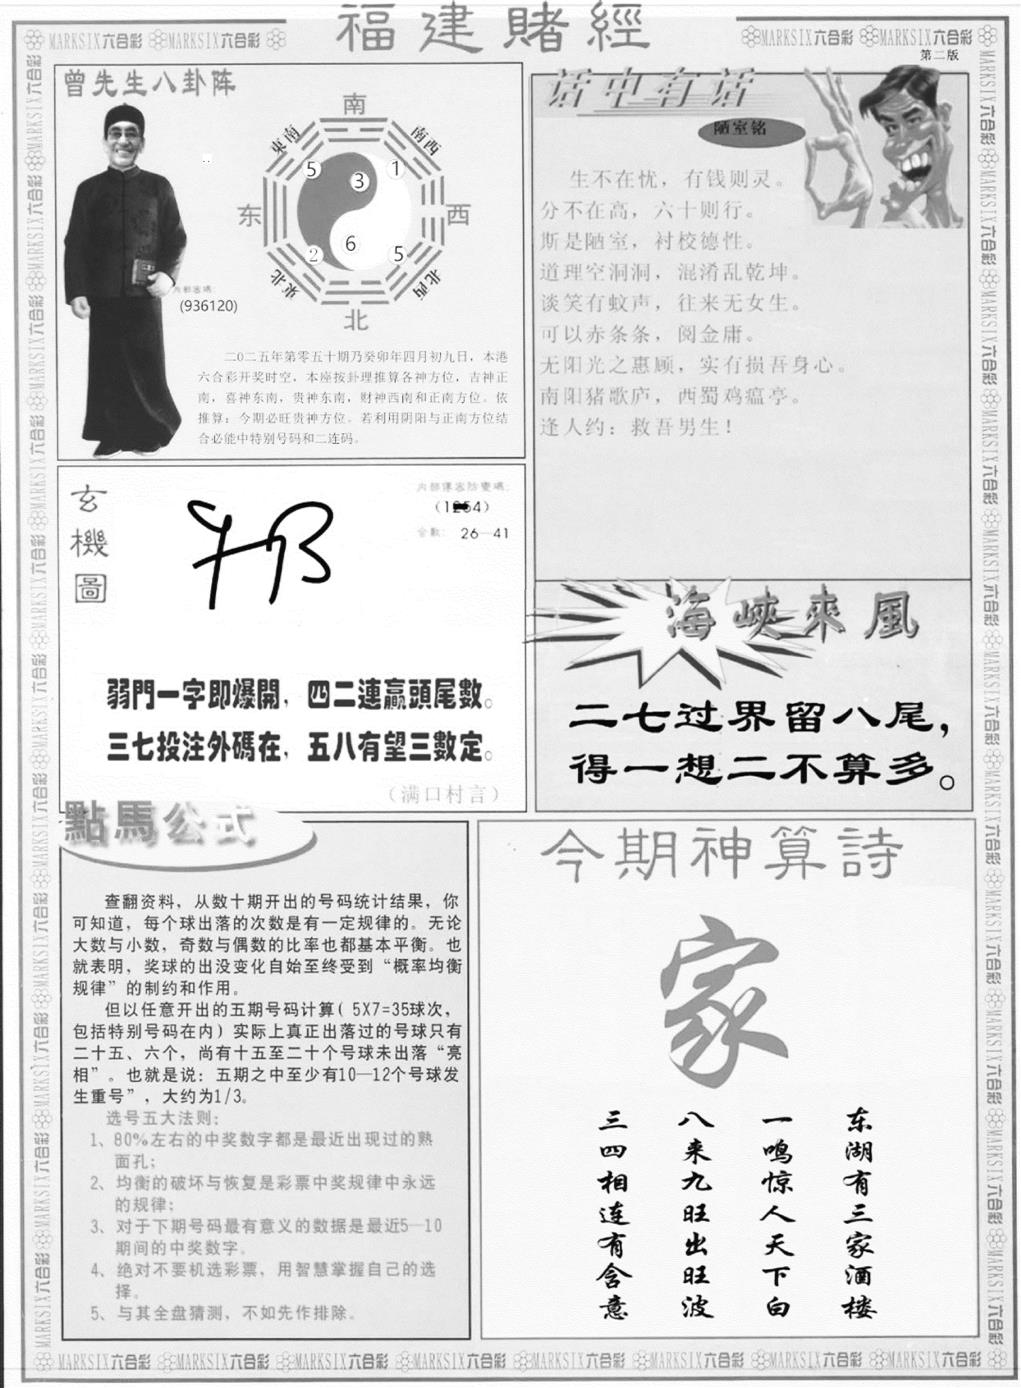 福建賭經
MARKSIX六合彩 MARKSIX六合彩
MARKSIX六合彩 MARKSIX六合彩
第二版
曾先生八卦阵
南
東南
南西
5
3
1
东
西
2
6
5
東北
北西
北
内部密碼:
(936120)
二0二五年第零五十期乃癸卯年四月初九日，本港
六合彩开奖时空，本座按卦理推算各神方位，吉神正
南，喜神东南，贵神东南，财神西南和正南方位。依
推算：今期必旺贵神方位。若利用阴阳与正南方位结
合必能中特别号码和二连码。
话中有话
陋室铭
生不在忧，有钱则灵。
分不在高，六十则行。
斯是陋室，衬校德性。
道理空洞洞，混淆乱乾坤。
谈笑有蚊声，往来无女生。
可以赤条条，阅金庸。
无阳光之惠顾，实有损吾身心。
南阳猪歌庐，西蜀鸡瘟亭。
逢人约：救吾男生！
玄機圖
(1254)
合數： 26—41
弱門一字即爆開，四二連贏頭尾數。
三七投注外碼在，五八有望三數定。
（满口村言）
海峽來風
二七过界留八尾，
得一想二不算多。
點馬公式
查翻资料，从数十期开出的号码统计结果，你
可知道，每个球出落的次数是有一定规律的。无论
大数与小数，奇数与偶数的比率也都基本平衡。也
就表明，奖球的出没变化自始至终受到“概率均衡
规律”的制约和作用。
但以任意开出的五期号码计算( 5X7=35球次，
包括特别号码在内）实际上真正出落过的号球只有
二十五、六个，尚有十五至二十个号球未出落“亮
相”。也就是说：五期之中至少有10—12个号球发
生重号”，大约为1/3。
选号五大法则：
1、80%左右的中奖数字都是最近出现过的熟
面孔；
2、均衡的破坏与恢复是彩票中奖规律中永远
的规律；
3、对于下期号码最有意义的数据是最近5—10
期间的中奖数字。
4、绝对不要机选彩票，用智慧掌握自己的选
择。
5、与其全盘猜测，不如先作排除。
今期神算詩
家
东湖有三家酒楼
一鸣惊人天下白
八来九旺出旺波
三四相连有含意
MARKSIX六合彩 MARKSIX六合彩 MARKSIX六合彩 MARKSIX六合彩 MARKSIX六合彩 MARKSIX六合彩 MARKSIX六合彩 MARKSIX六合彩